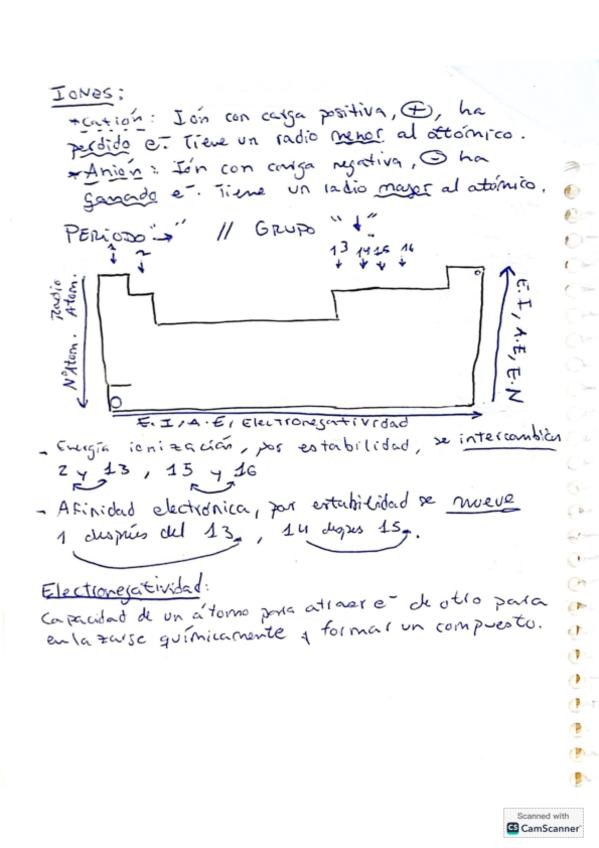 IONES:
*Catión: Ión con carga positiva, +, ha
perdido e-. Tiene un radio menor al atómico.
*Anión: Ión con carga negativa, - ha
ganado e-. Tiene un radio mayor al atómico.
PERÍODO "→" // GRUPO "↓"
1 2 13 14 15 16
Radio Atom.
NºAtom.
E.I, A.E, E.N
E.I, A.E, Electronegatividad
- Energía ionización, por estabilidad, se intercambian
2 y 13, 15 y 16
- Afinidad electrónica, por estabilidad se mueve
1 después del 13, 14 despes 15.
Electronegatividad:
Capacidad de un átomo para atraer e- de otro para
enlazarse químicamente y formar un compuesto.
Scanned with
CS CamScanner